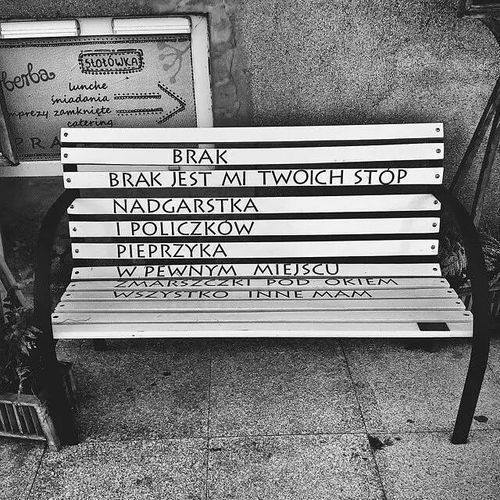 berba
STOŁÓWKA
lunche
śniadania
imprezy zamknięte
catering
PRA
BRAK
BRAK JEST MI TWOICH STÓP
NADGARSTKA
I POLICZKÓW
PIEPRZYKA
W PEWNYM MIEJSCU
ZMARSZCZKI POD OKIEM
WSZYSTKO INNE MAM